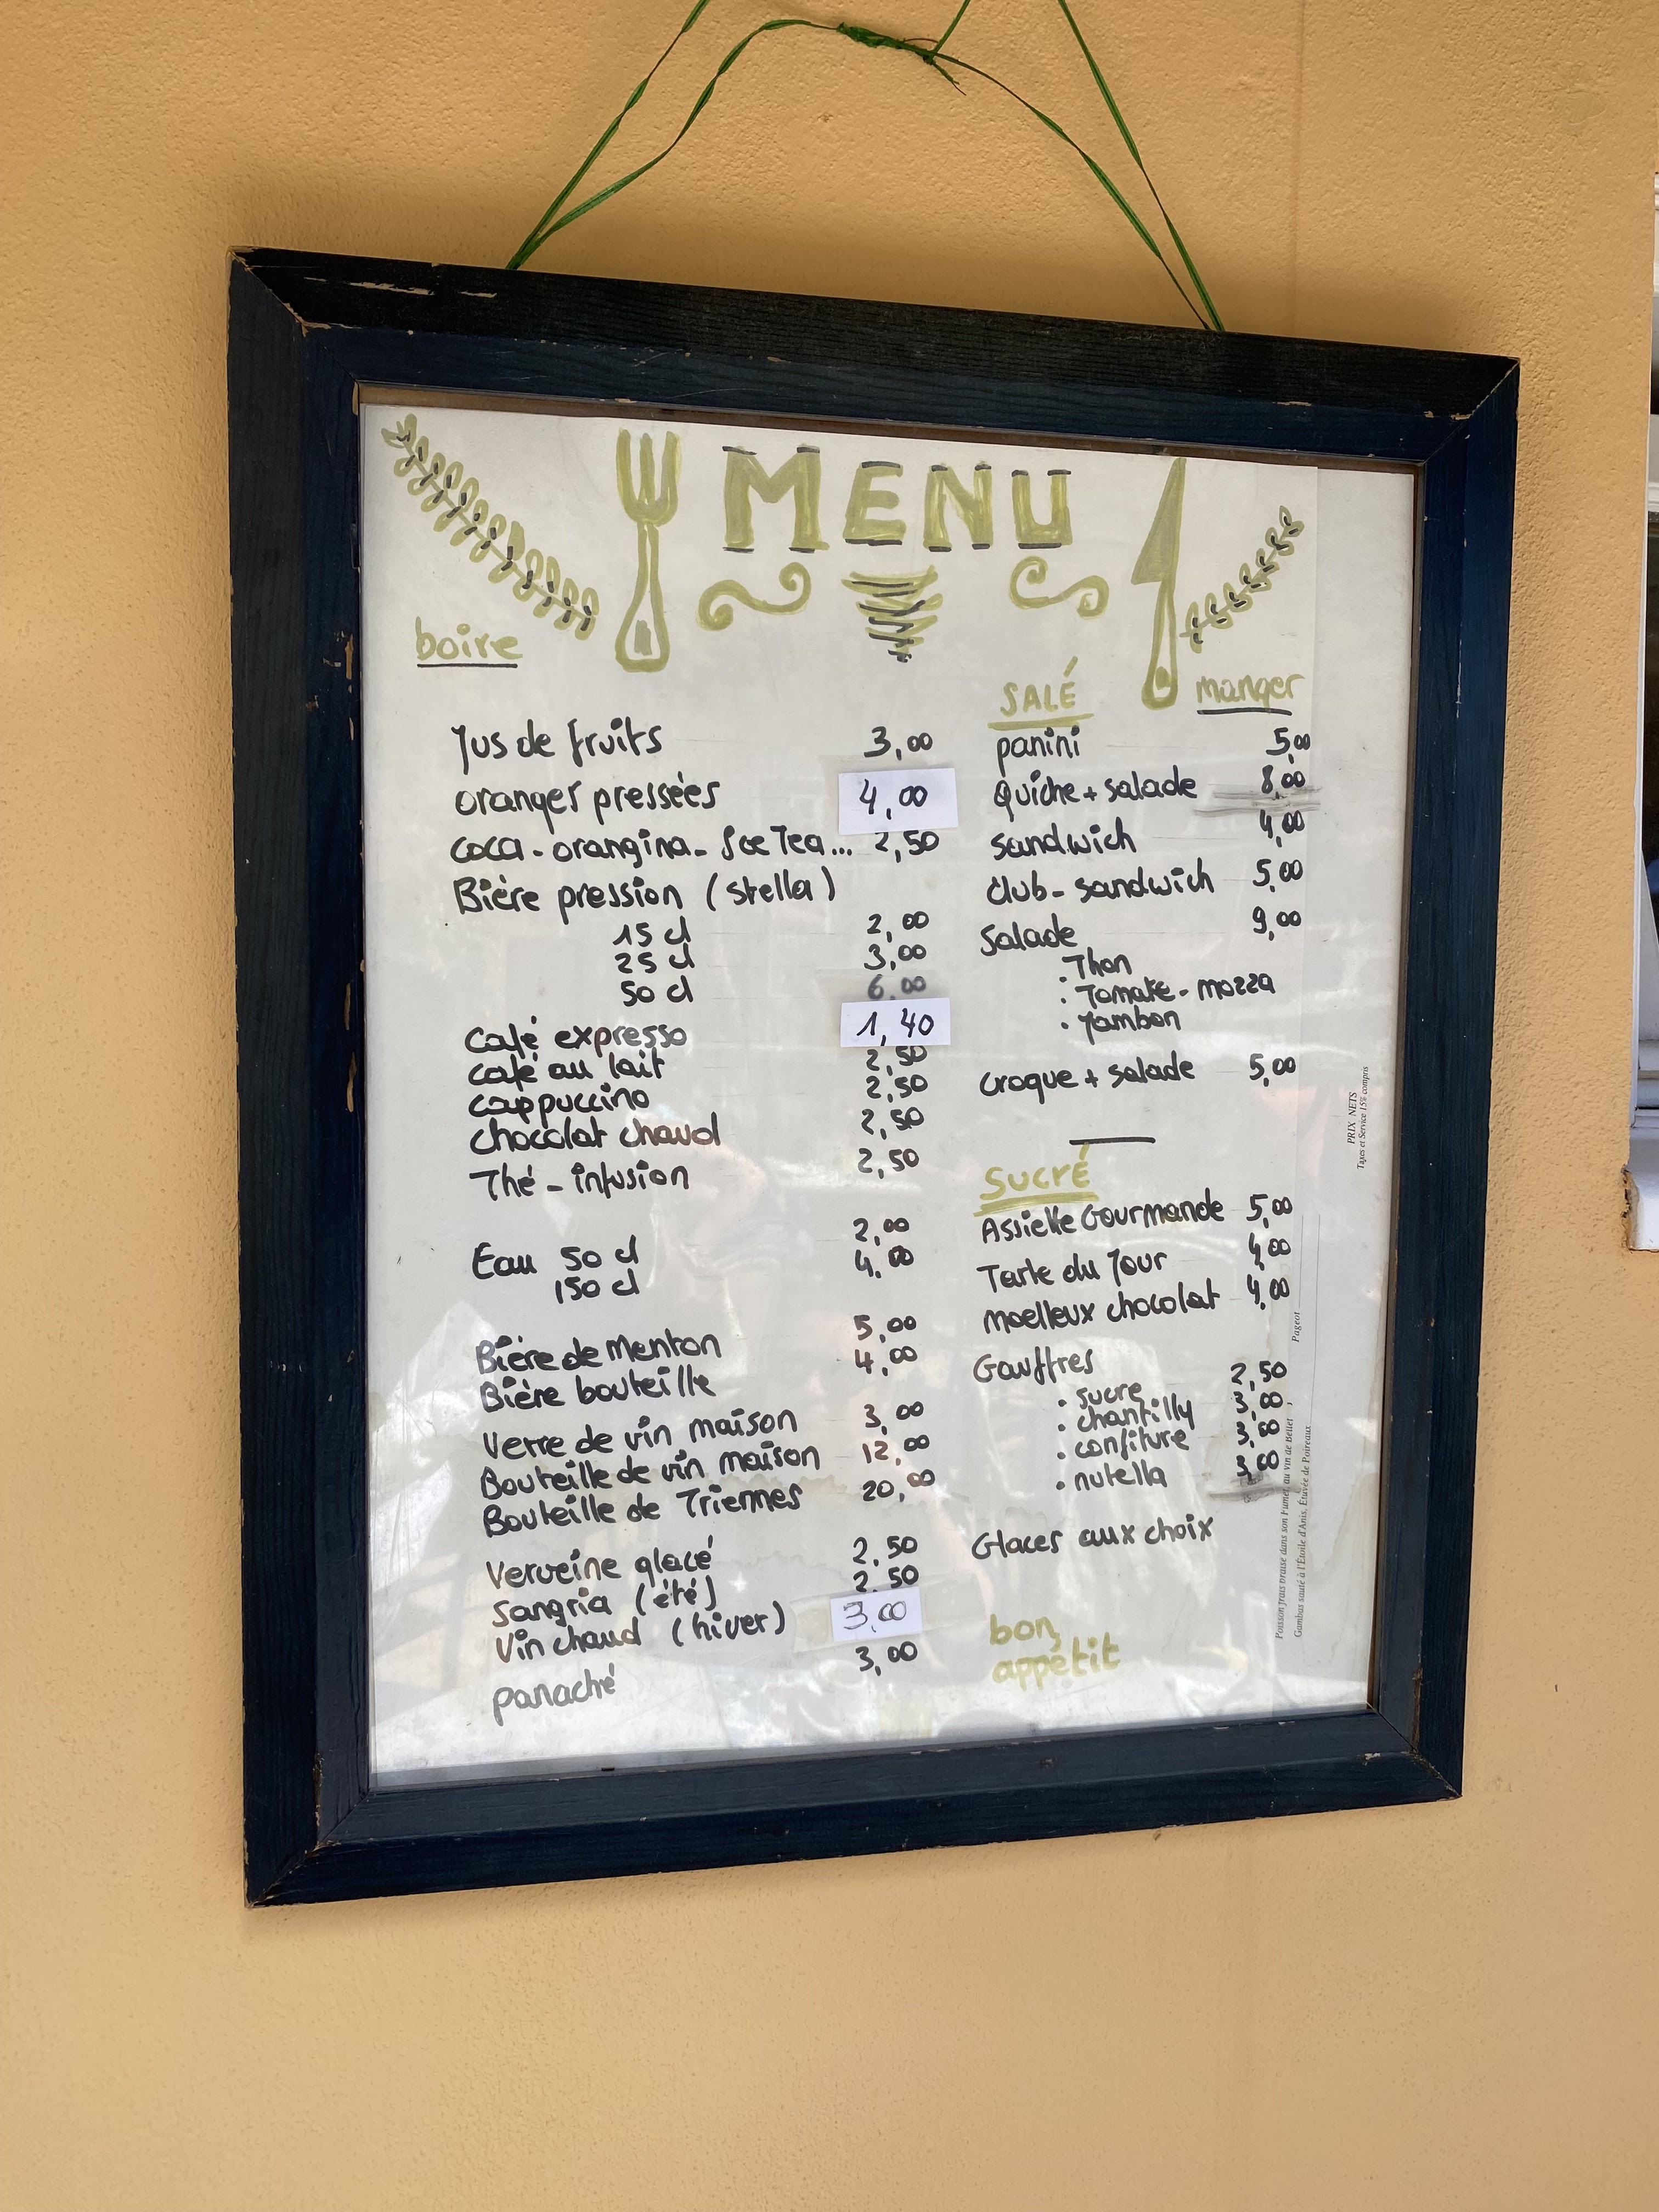 MENU
boire
Jus de fruits 3,00
oranges pressées 4,00
coca - orangina - Ice Tea... 2,50
Bière pression (stella)
15 cl 2,00
25 cl 3,00
50 cl 6,00
café expresso 1,40
café au lait 2,50
cappuccino 2,50
chocolat chaud 2,50
Thé - infusion 2,50
Eau 50 cl 2,00
150 cl 4,00
Bière de Menton 5,00
Bière bouteille 4,00
Verre de vin maison 3,00
Bouteille de vin maison 12,00
Bouteille de Triennes 20,00
Verveine glacé 2,50
Sangria (été) 2,50
Vin chaud (hiver) 3,00
panaché 3,00
SALÉ manger
panini 5,00
Quiche + salade 8,00
sandwich 4,00
club - sandwich 5,00
Salade 9,00
. Thon
. Tomate - mozza
. Jambon
croque + salade 5,00
SUCRÉ
Assiette Gourmande 5,00
Tarte du Jour 4,00
moelleux chocolat 4,00
Gauffres
. sucre 2,50
. chantilly 3,00
. confiture 3,00
. nutella 3,00
Glaces aux choix
bon
appétit
PRIX NETS
Taxes et Service 15% compris
Pageot
Poisson frais braisé dans son Fumet au vin de Bellet
Gambas sauté à l'Étoile d'Anis, Étuvée de Poireaux